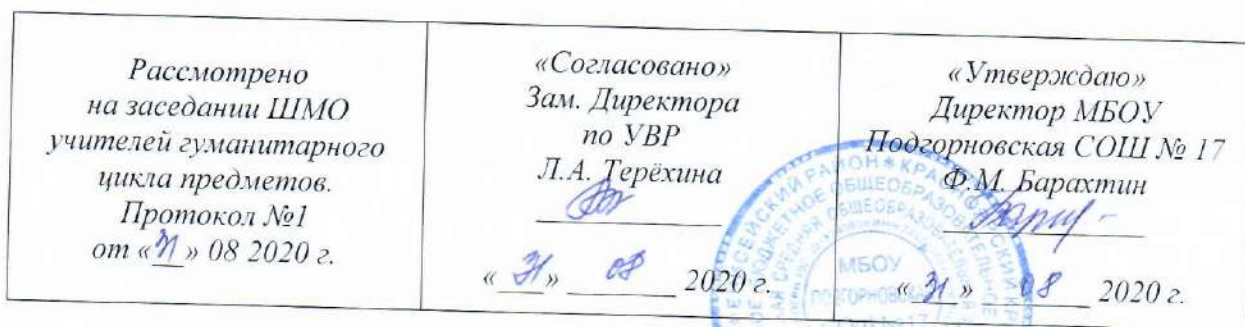 Рассмотрено
на заседании ШМО
учителей гуманитарного
цикла предметов.
Протокол №1
от «31» 08 2020 г.
«Согласовано»
Зам. Директора
по УВР
Л.А. Терёхина
«31» 08 2020 г.
«Утверждаю»
Директор МБОУ
Подгорновская СОШ № 17
Ф.М. Барахтин
«31» 08 2020 г.
МБОУ